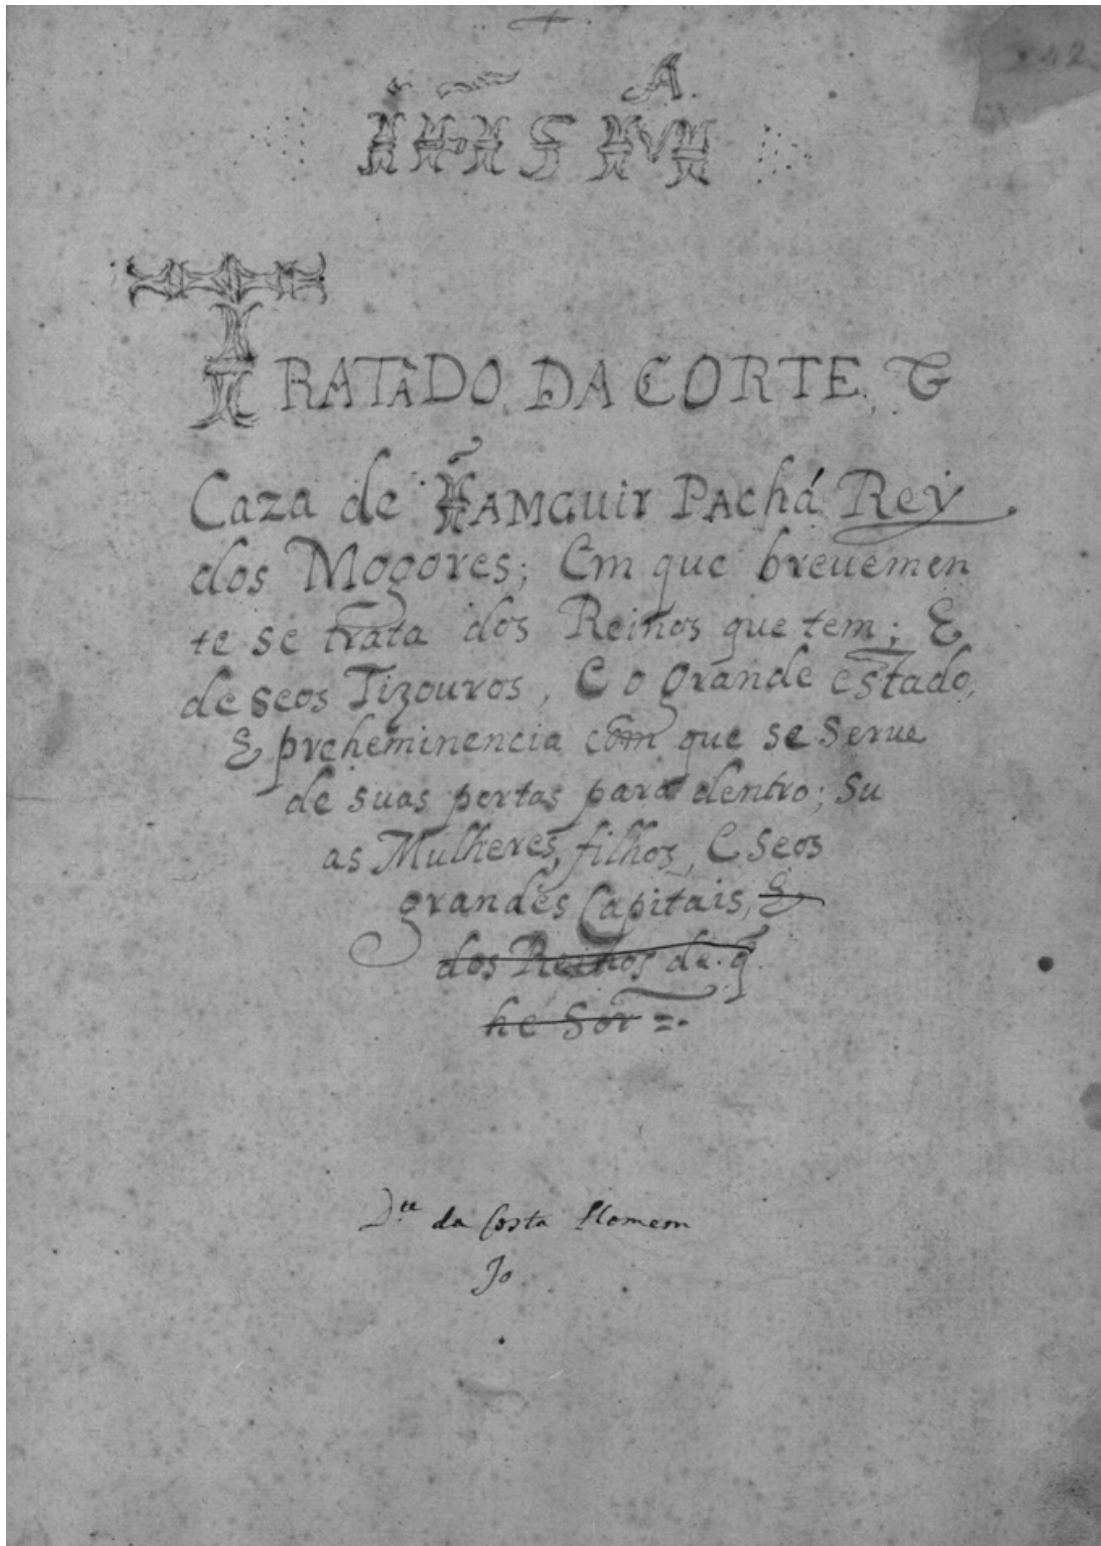 IHS M^A
TRATADO DA CORTE, E
Caza de IAMGUIR PAchá Rey
dos Mogores; Em que breuemen
te se trata dos Reinos que tem; E
de seos Tizouros, E o grande estado,
E preheminencia com que se serue
de suas portas para dentro; Su
as Mulheres, filhos, E seos
grandes Capitais, E
dos Reinos de q̃
he Sor =-
D.te da Costa Homem
Jo